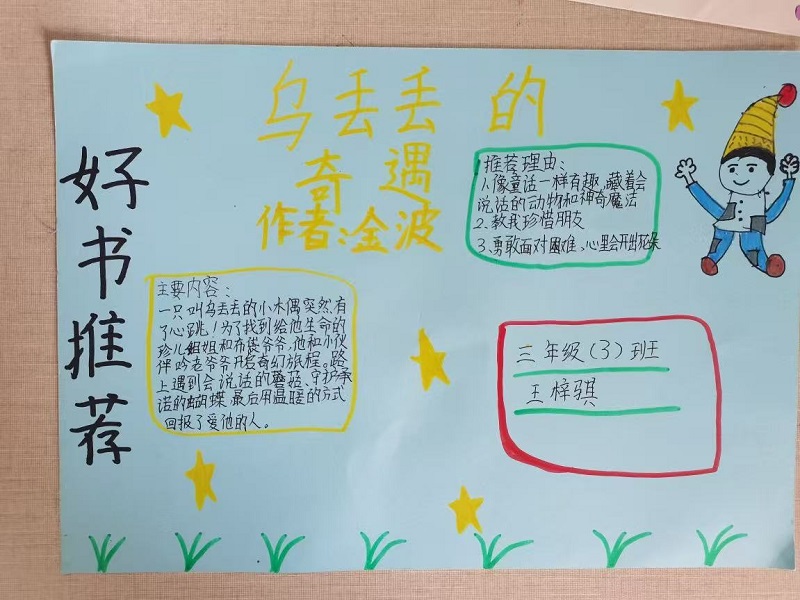 好书推荐
乌丢丢的
奇遇
作者:金波
推荐理由:
1.像童话一样有趣,藏着会
说话的动物和神奇魔法
2.教我珍惜朋友
3、勇敢面对困难、心里会开出花朵
主要内容:
一只叫乌丢丢的小木偶突然有
了心跳!为了找到给他生命的
珍儿姐姐和布袋爷爷,他和小伙
伴吟老爷爷开启奇幻旅程。路
上遇到会说话的蘑菇、守护承
诺的蝴蝶最后用温暖的方式
回报了爱他的人。
三年级(3)班
王梓骐